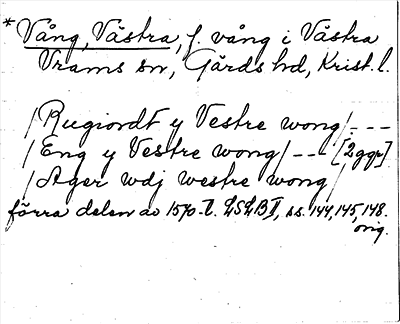 * Vång, Västra, f. vång i Västra
Vrams sn, Gärds hd, Krist. l.
/Rugiordt y Vestre wong/ - - -
/Eng y Vestre wong/ - - - [2 ggr]
/Ager wdj westre wong/
förra delen av 1570-t. LSLB I, ss. 144, 145, 148.
orig.